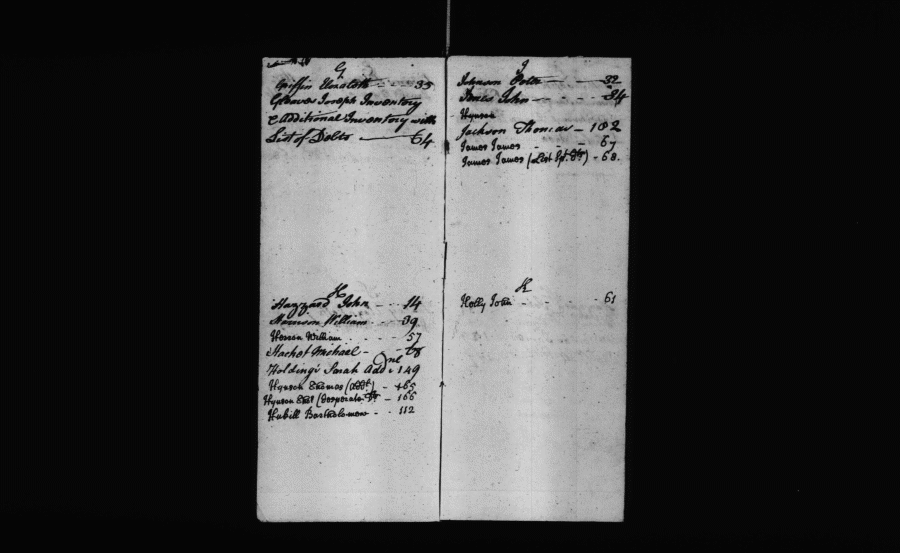 G
Griffin 35
Gleaves Joseph Inventory
& Additional Inventory with
List of Debts 64
H
Hazzard John 14
Harrison William 39
William 57
Hacket Michael
Holdings Sarah Addnl 149
Hynson Thomas 165
Hynson (Desperate Dts 166
Hubill Bartholomew 112
J
Johnson 32
James John 34
Hynson
Jackson Thomas 182
James James 67
James James (List Sp. Dts) 68.
K
John 61